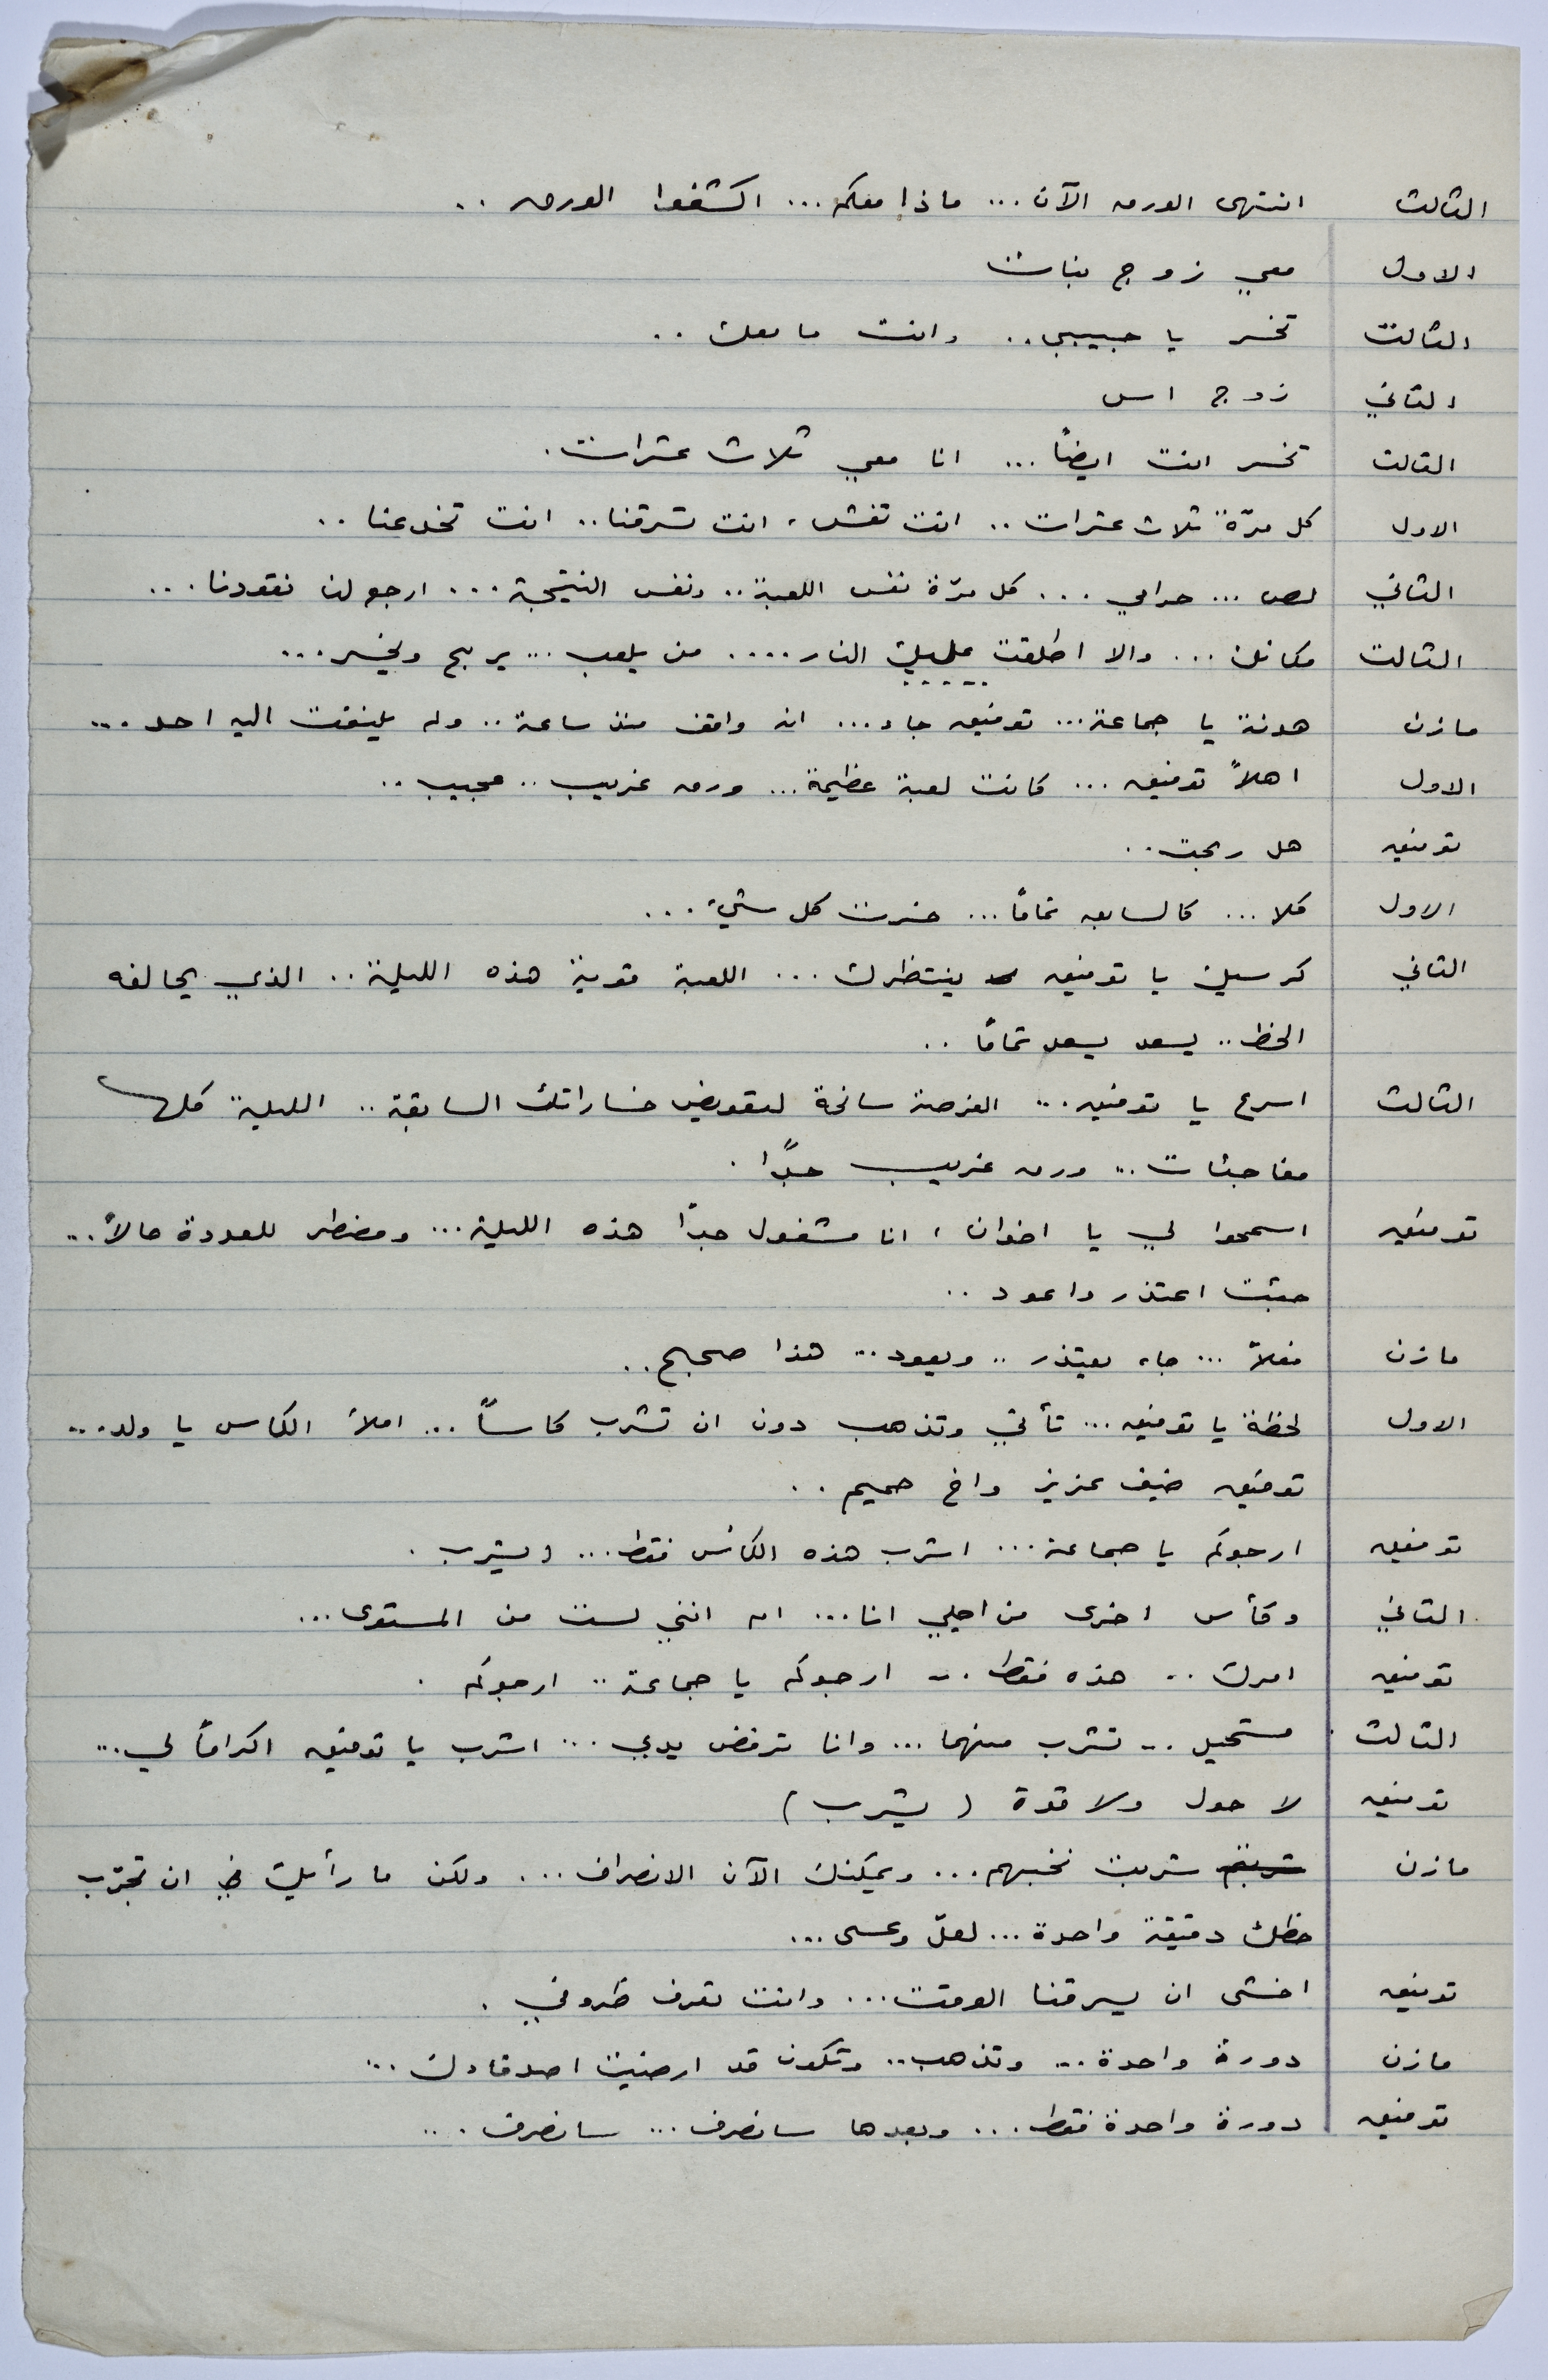 الثالث انتهى الورق الآن ... ماذا معكم ... اكشفوا الورق ..
الاول معي زوج بنات
الثالث تخسر يا حبيبي .. وانت ما معك ..
الثاني زوج اس
الثالث تخسر انت ايضاً ... انا معي ثلاث عشرات .
الاول كل مرّة ثلاث عشرات .. انت تغش ، انت تسرقنا .. انت تخدعنا ..
الثاني لص ... حرامي ... كل مرّة نفس اللعبة .. ونفس النتيجة ... ارجع لنا نقودنا ...
الثالث مكانك ... والا اطلقت عليك النار .... من يلعب ... يربح ويخسر ...
مازن هدنة يا جماعة ... توفيق جاء ... انه واقف منذ ساعة .. ولم يلتفت اليه احد ...
الاول اهلاً توفيق ... كانت لعبة عظيمة ... ورق غريب .. عجيب ..
توفيق هل ربحت ..
الاول كلا ... كالسابق تماماً ... خسرت كل شيء ...
الثاني كرسيك يا توفيق ينتظرك ... اللعبة قوية هذه الليلة .. الذي يحالفه
الحظ .. يسعد يسعد تماماً ..
الثالث اسرع يا توفيق ... الفرصة سانحة لتعويض خساراتك السابقة .. الليلة كلها
مفاجئات ... ورق غريب جدًا .
توفيق اسمحوا لي يا اخوان ، انا مشغول جداً هذه الليلة ... ومضطر للعودة حالاً ...
جئت اعتذر واعود ..
مازن فعلاً ... جاء يعتذر .. ويعود ... هذا صحيح ..
الاول لحظة يا توفيق ... تأتي وتذهب دون ان تشرب كاساً ... املأ الكاس يا ولد ...
توفيق ضيف عزيز واخ حميم ..
توفيق ارجوكم يا جماعة ... اشرب هذه الكأس فقط ... ويشرب .
الثاني وكأس اخرى من اجلي انا ... ام انني لست من المستوى ...
توفيق امرك .. هذه فقط ... ارجوكم يا جماعة .. ارجوكم .
الثالث مستحيل ... تشرب منهما ... وانا ترفض يدي ... اشرب يا توفيق اكراماً لي ...
توفيق لا حول ولا قوة ( يشرب )
مازن شربتم شربت نخبهم ... ويمكنك الآن الانصراف ... ولكن ما رأيك في ان تجرّب
حظك دقيقة واحدة ... لعلّ وعسى ...
توفيق اخشى ان يسرقنا الوقت ... وانت تعرف ظروفي .
مازن دورة واحدة ... وتذهب .. وتكون قد ارضيت اصدقاءك ...
توفيق دورة واحدة فقط ... وبعدها سانصرف ... سانصرف ...